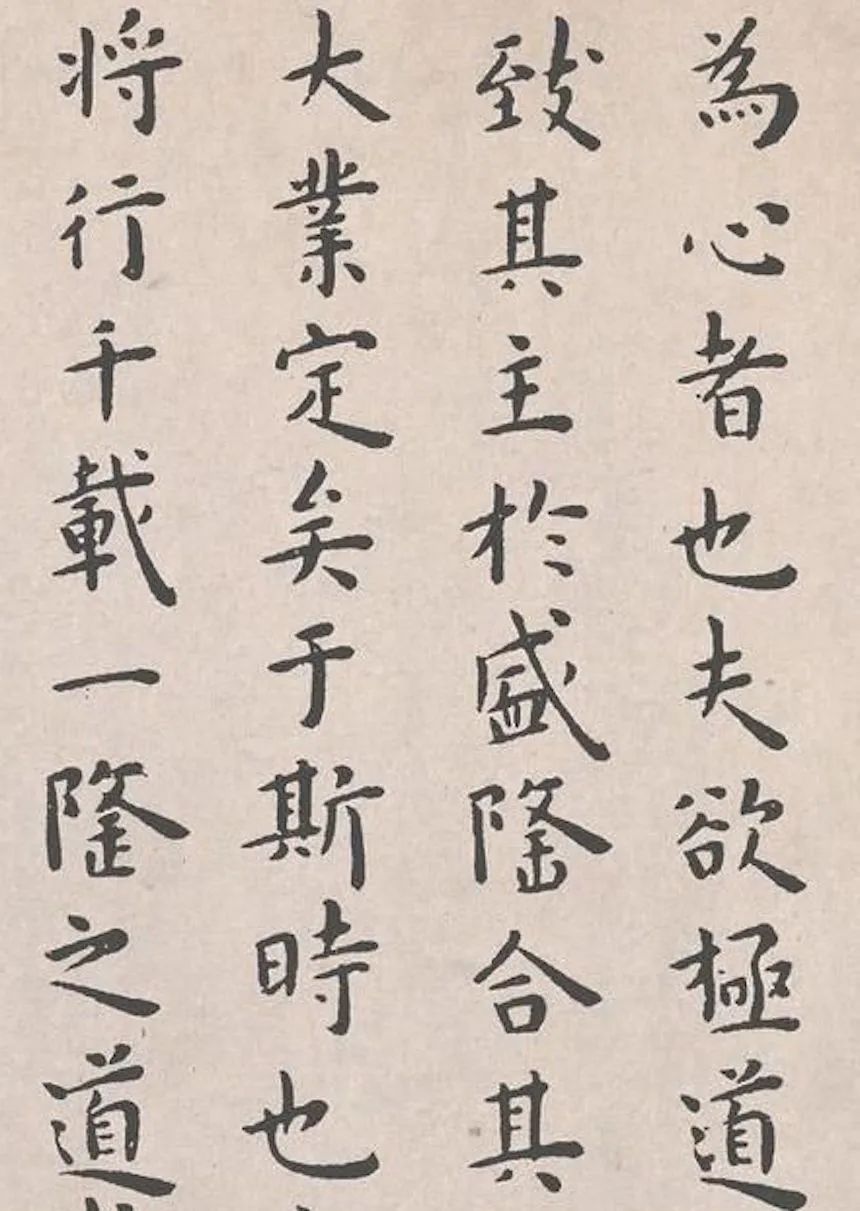 為心者也夫欲極道
致其主於盛隆合其
大業定矣于斯時也
将行千載一隆之道